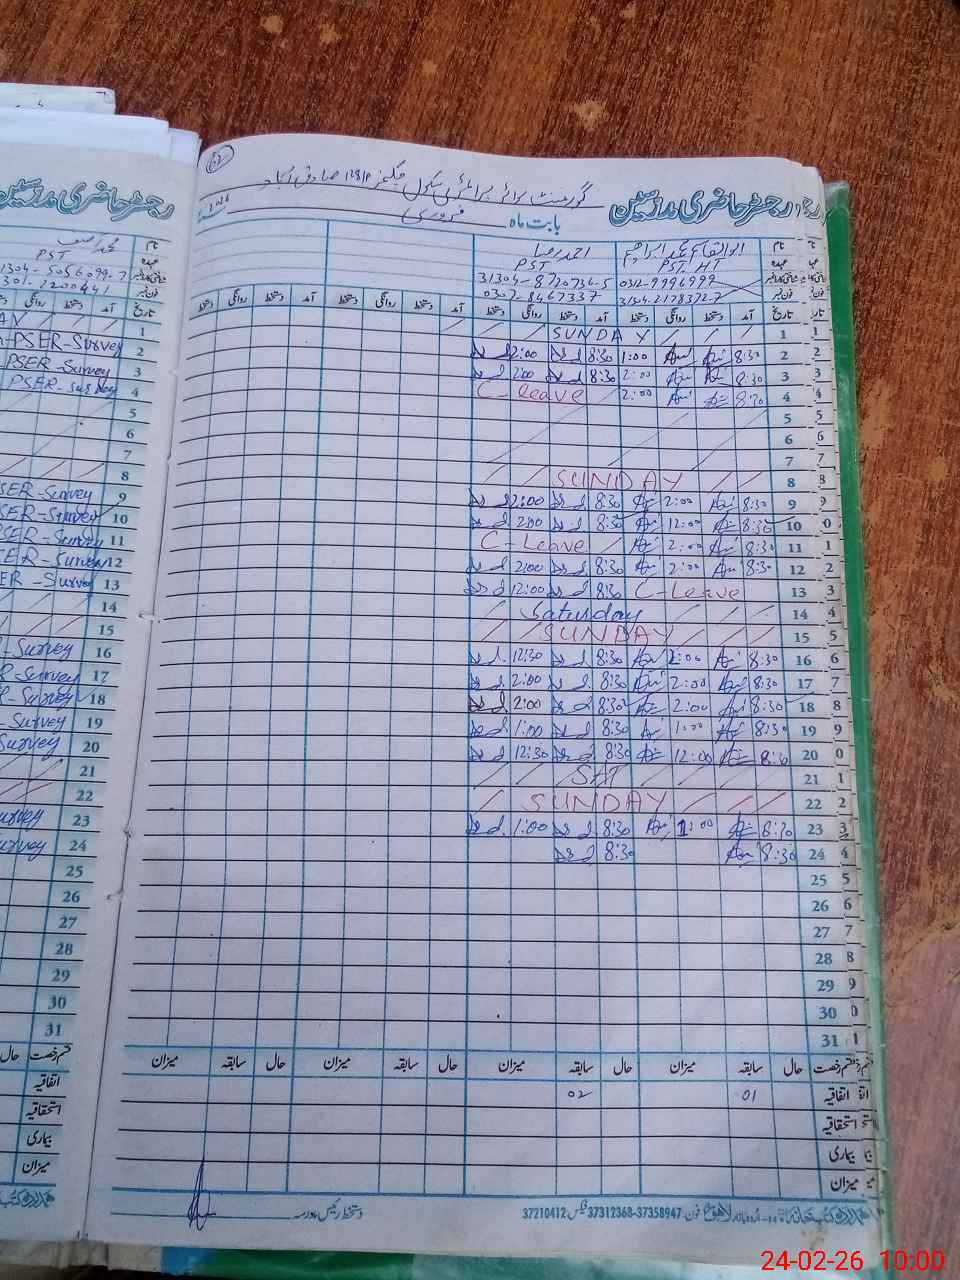 62
گورنمنٹ بوائز پرائمری سکول چک نمبر 128/P صادق آباد
رجسٹر حاضری مدرسین
بابت ماہ فروری 2026
نام ابوالقاسم محمد ابراہیم احمد رضا
عہدہ PST. HT PST
شناختی کارڈ نمبر 0312-9996999 31304-8720734-5
فون نمبر 31304-2178372-7 0307-8467337
تاریخ آمد دستخط روانگی دستخط آمد دستخط روانگی دستخط آمد دستخط روانگی دستخط آمد دستخط روانگی دستخط
1 SUNDAY
2 8:30 1:00 8:30 2:00
3 8:30 2:00 8:30 2:00
4 8:30 2:00 C-Leave
5
6
7
8 SUNDAY
9 8:30 2:00 8:30 2:00
10 8:30 12:00 8:30 2:00
11 8:30 2:00 C-Leave
12 8:30 2:00 8:30 2:00
13 C-Leave 8:30 12:00
14 Saturday
15 SUNDAY
16 8:30 2:00 8:30 12:30
17 8:30 2:00 8:30 2:00
18 8:30 2:00 8:30 2:00
19 8:30 1:00 8:30 1:00
20 8:30 12:00 8:30 12:30
21 SAT
22 SUNDAY
23 8:30 1:00 8:30 1:00
24 8:30 8:30
25
26
27
28
29
30
31
قسم رخصت حال سابقہ میزان حال سابقہ میزان حال سابقہ میزان حال سابقہ میزان
اتفاقیہ 01 02
استحقاقیہ
بیماری
میزان
دستخط رئیس مدرسہ
لاہور فون: 37358947-37312368 فیکس: 37210412
رجسٹر حاضری مدرسین
PST
1304-5056099-7
301-7200441
دستخط روانگی دستخط تاریخ
1
PSER-Survey 2
PSER-Survey 3
PSER-Survey 4
5
6
7
8
SER-Survey 9
SER-Survey 10
SER-Survey 11
ER-Survey 12
ER-Survey 13
14
15
-Survey 16
R-Survey 17
R-Survey 18
-Survey 19
Survey 20
21
22
urvey 23
urvey 24
25
26
27
28
29
30
31
قسم رخصت حال
اتفاقیہ
استحقاقیہ
بیماری
میزان
24-02-26 10:00